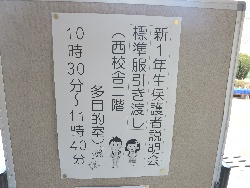 新1年生保護者説明会
標準服引き渡し
(西校舎二階
多目的室)
10時30分～11時40分